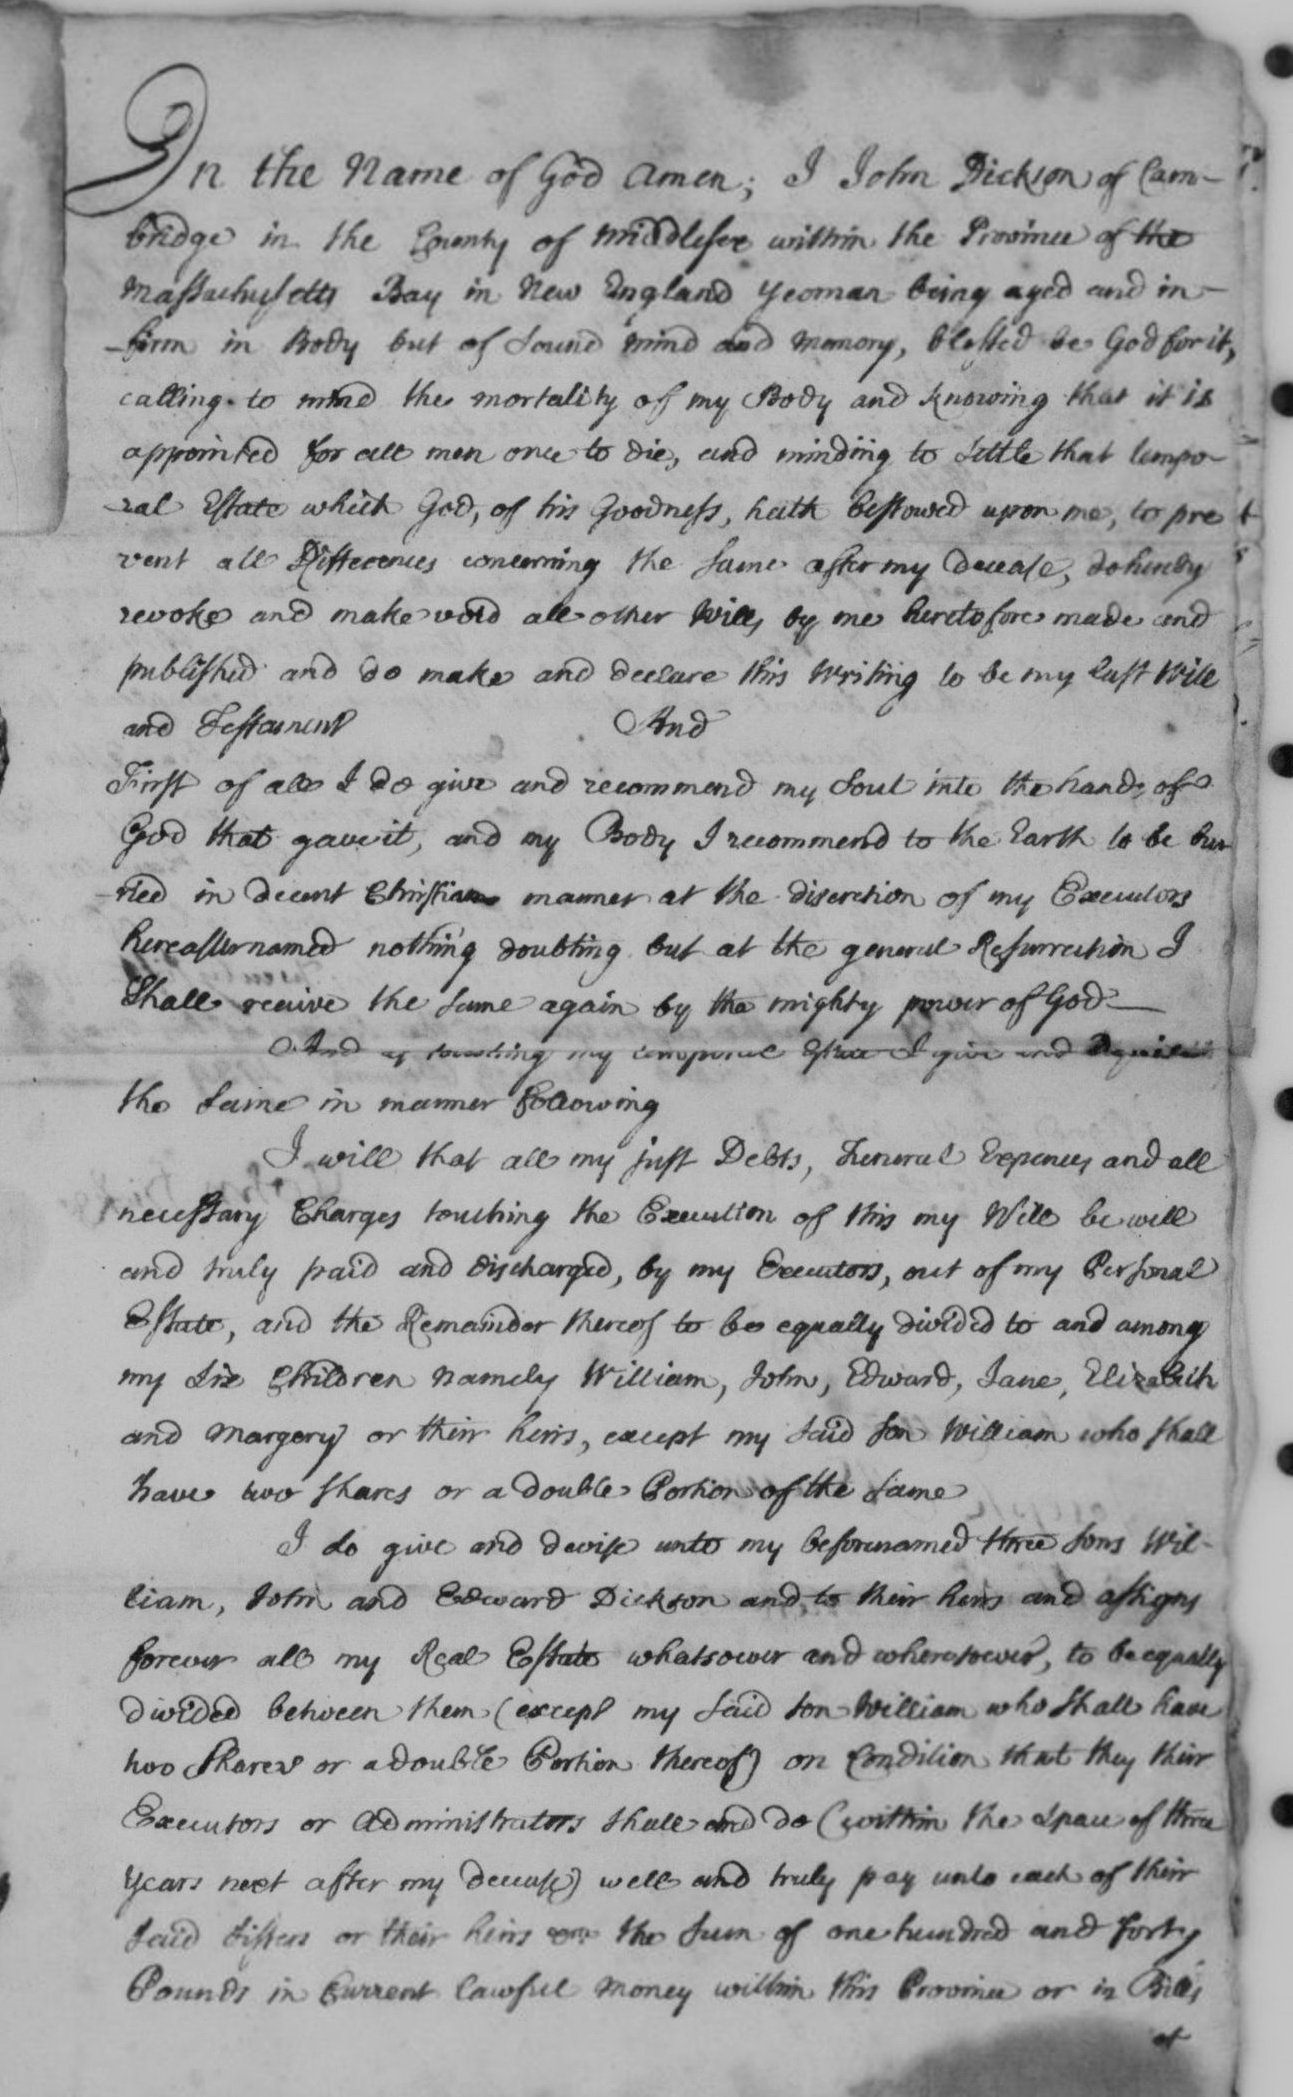 In the Name of God Amen; I John Dickson of Cam-
bridge in the County of Middlesex within the Province of the
Massachusetts Bay in New England Yeoman being aged and in-
-firm in Body but of Sound mind and Memory, blessed be God for it,
calling to mind the mortality of my Body and knowing that it is
appointed for all men once to die, and minding to Settle that tempo-
-ral Estate which God, of his Goodness, hath bestowed upon me, to pre
vent all Differences concerning the Same after my decease, do hereby
revoke and make void all other Wills by me heretofore made and
published and do make and declare this Writing to be my last Will
and Testament And
First of all I do give and recommend my Soul into the hands of
God that gave it, and my Body I recommend to the Earth to be bur
-ried in decent Christian manner at the discretion of my Executors
hereafter named nothing doubting but at the general Resurrection I
Shall receive the Same again by the mighty power of God
And as touching my temporal Estate I give and
the Same in manner following
I will that all my just Debts, Funeral Expences and all
necessary Charges touching the Execution of this my Will be well
and truly paid and discharged, by my Executors, out of my Personal
Estate, and the Remainder thereof to be equally divided to and among
my Six Children namely William, John, Edward, Jane, Elizabeth
and Margery or their heirs, except my Said Son William who Shall
have two Shares or a double Portion of the Same
I do give and devise unto my beforenamed three Sons Wil-
liam, John and Edward Dickson and to their heirs and assigns
forever all my Real Estate whatsoever and wheresoever, to be equally
divided between them (except my Said Son William who Shall have
two Shares or a double Portion thereof) on Condition that they their
Executors or Administrators Shall and do (within the Space of three
Years next after my decease) well and truly pay unto each of their
Said Sisters or their heirs the Sum of one hundred and forty
Pounds in Current lawful Money within this Province or in Bills
of